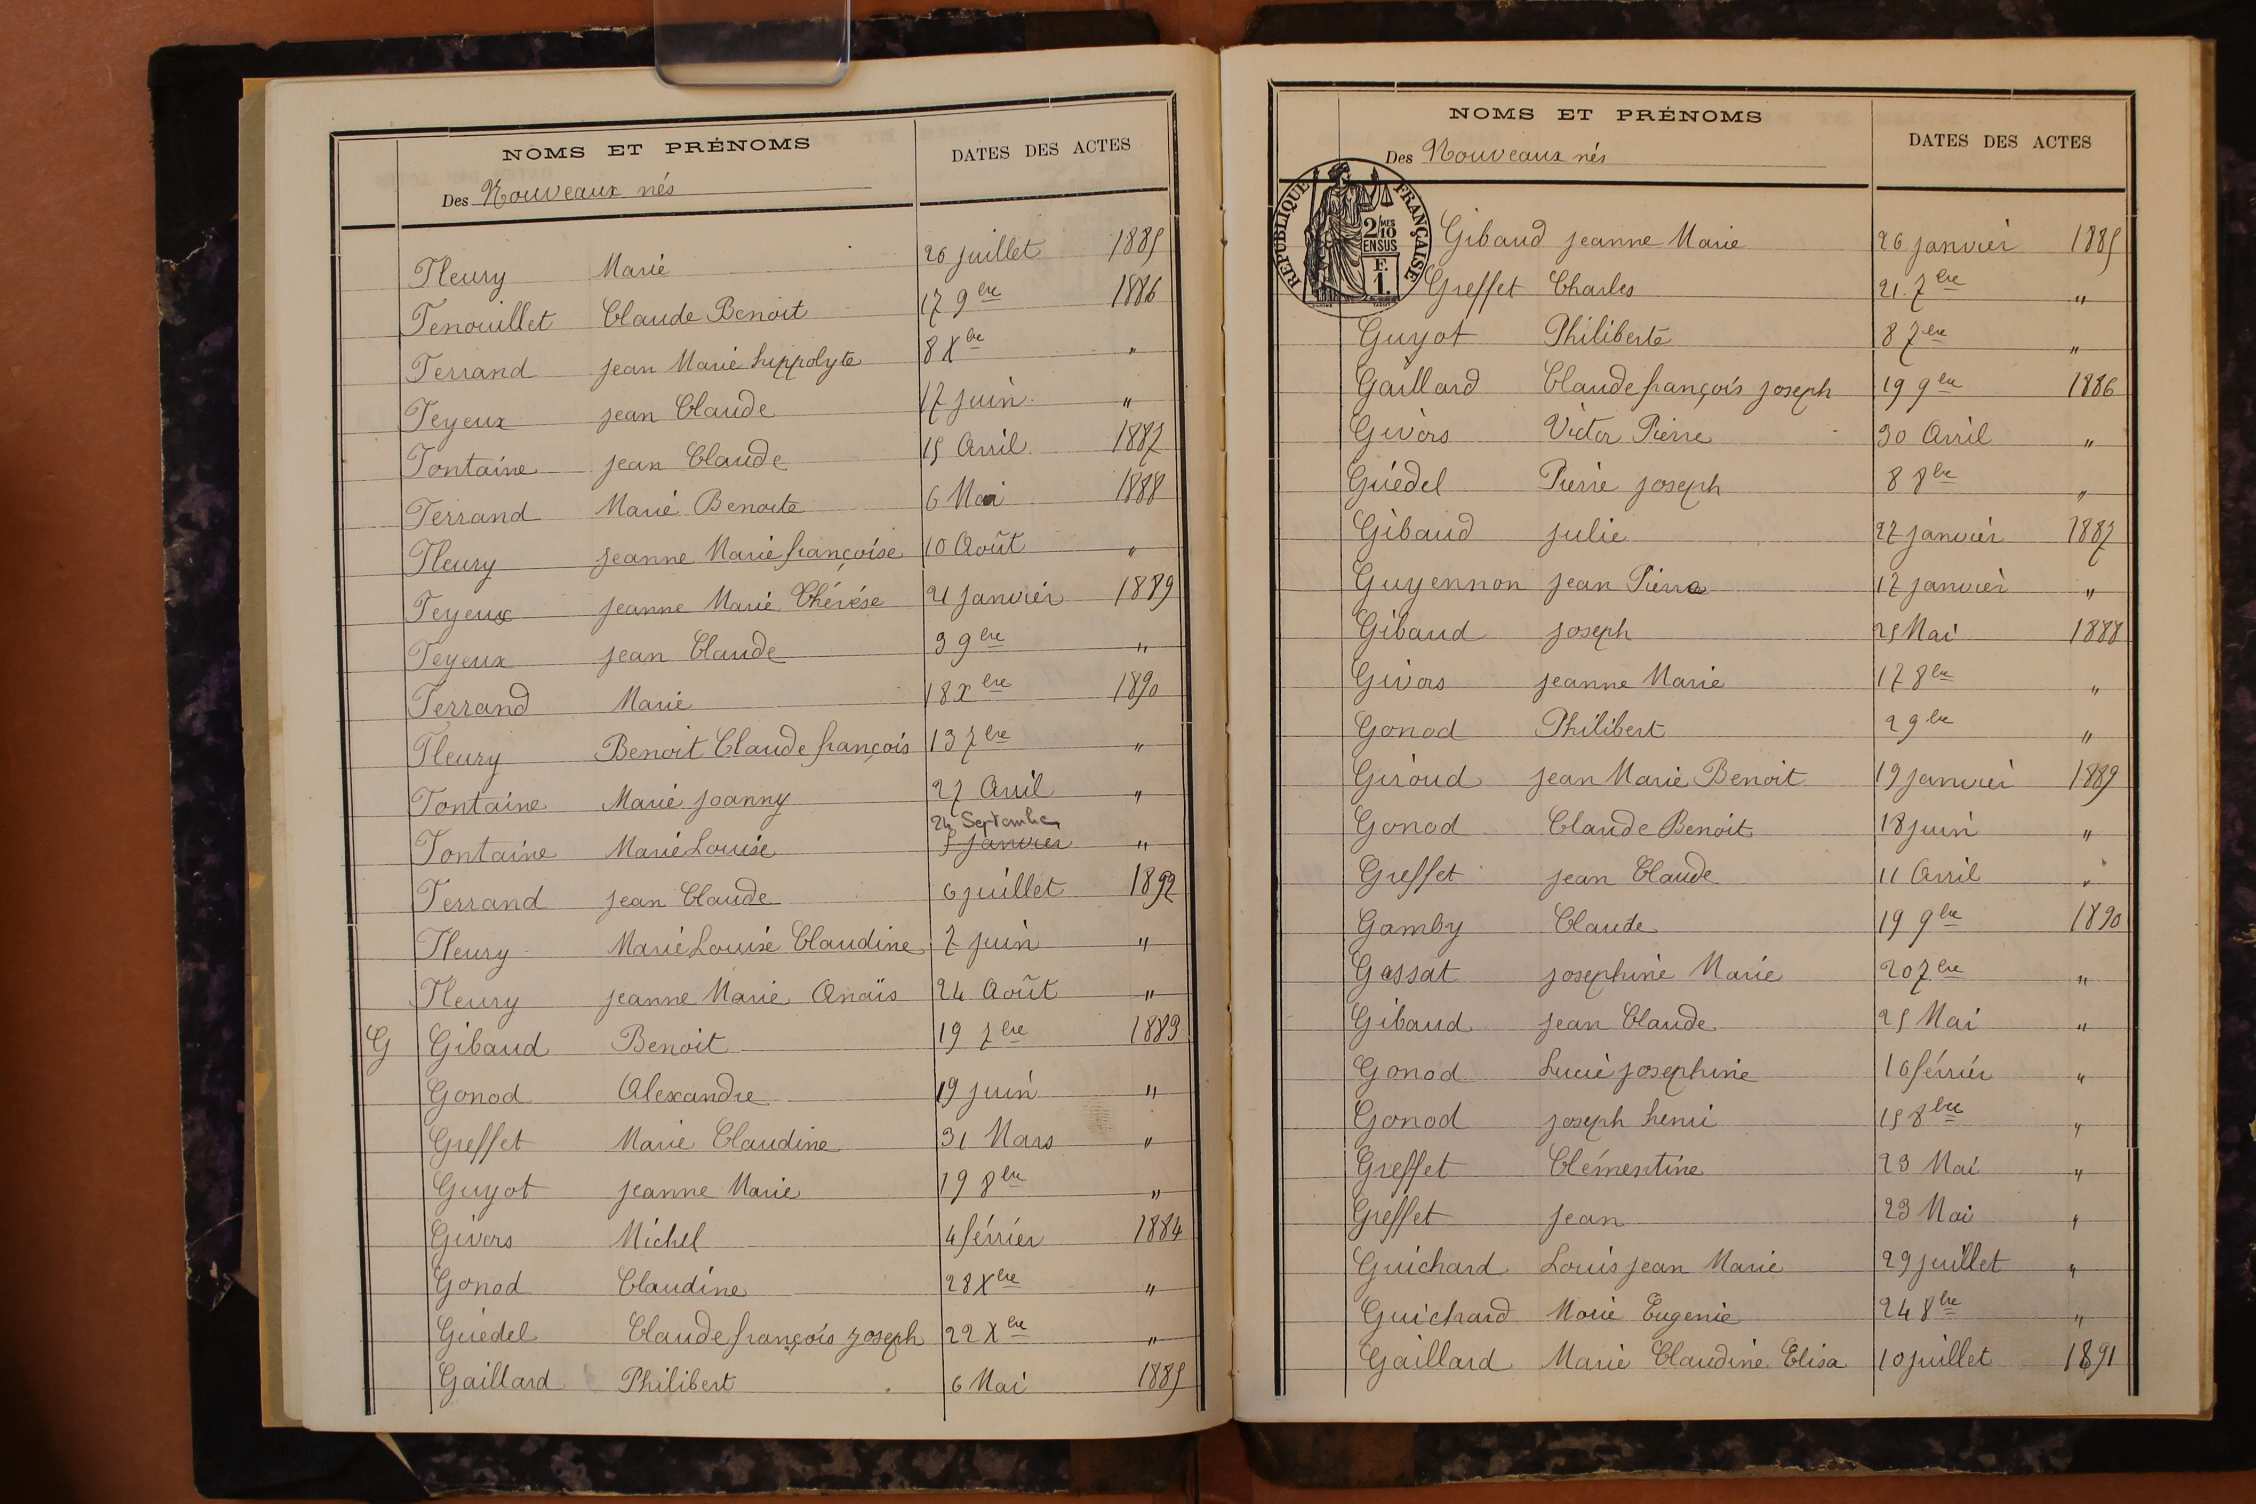 NOMS ET PRÉNOMS
DATES DES ACTES
Des Nouveaux nés
Fleury Marie 26 juillet 1885
Fenouillet Claude Benoit 17 9bre 1886
Ferrand jean Marie hippolyte 8 Xbre "
Feyeux jean Claude 17 juin "
Fontaine jean Claude 15 Avril 1887
Ferrand Marie Benoite 6 Mai 1888
Fleury jeanne Marie françoise 10 Août "
Feyeux jeanne Marie Thérése 21 janvier 1889
Feyeux jean Claude 3 9bre "
Ferrand Marie 18 Xbre 1890
Fleury Benoit Claude françois 13 7bre "
Fontaine Marie joanny 27 Avril "
24 Septembre
Fontaine Marie Louise janvier "
Ferrand jean Claude 6 juillet 1892
Fleury Marie Louise Claudine 7 juin "
Fleury jeanne Marie Anaïs 24 Août "
G Gibaud Benoit 19 7bre 1883
Gonod Alexandre 19 juin "
Greffet Marie Claudine 31 Mars "
Guyot jeanne Marie 19 8bre "
Givors Michel 4 février 1884
Gonod Claudine 28 Xbre "
Guédel Claude françois joseph 22 Xbre "
Gaillard Philibert 6 Mai 1885
NOMS ET PRÉNOMS
DATES DES ACTES
Des Nouveaux nés
RÉPUBLIQUE FRANÇAISE
2/10 MES
EN SUS
F.
1.
Gibaud jeanne Marie 26 janvier 1885
Greffet Charles 21 7bre "
Guyot Philiberte 8 7bre "
Gaillard Claude françois joseph 19 9bre 1886
Givors Victor Pierre 30 Avril "
Guédel Pierre joseph 8 8bre "
Gibaud julie 27 janvier 1887
Guyennon jean Pierre 17 janvier "
Gibaud joseph 25 Mai 1888
Givors jeanne Marie 17 8bre "
Gonod Philibert 2 9bre "
Giroud jean Marie Benoit 19 janvier 1889
Gonod Claude Benoit 18 juin "
Greffet jean Claude 11 Avril "
Gamby Claude 19 9bre 1890
Gassat josephine Marie 20 7bre "
Gibaud jean Claude 25 Mai "
Gonod Lucie josephine 16 février "
Gonod joseph henri 15 8bre "
Greffet Clémentine 23 Mai "
Greffet jean 23 Mai "
Guichard Louis jean Marie 29 juillet "
Guichard Marie Eugenie 24 8bre "
Gaillard Marie Claudine Elisa 10 juillet 1891